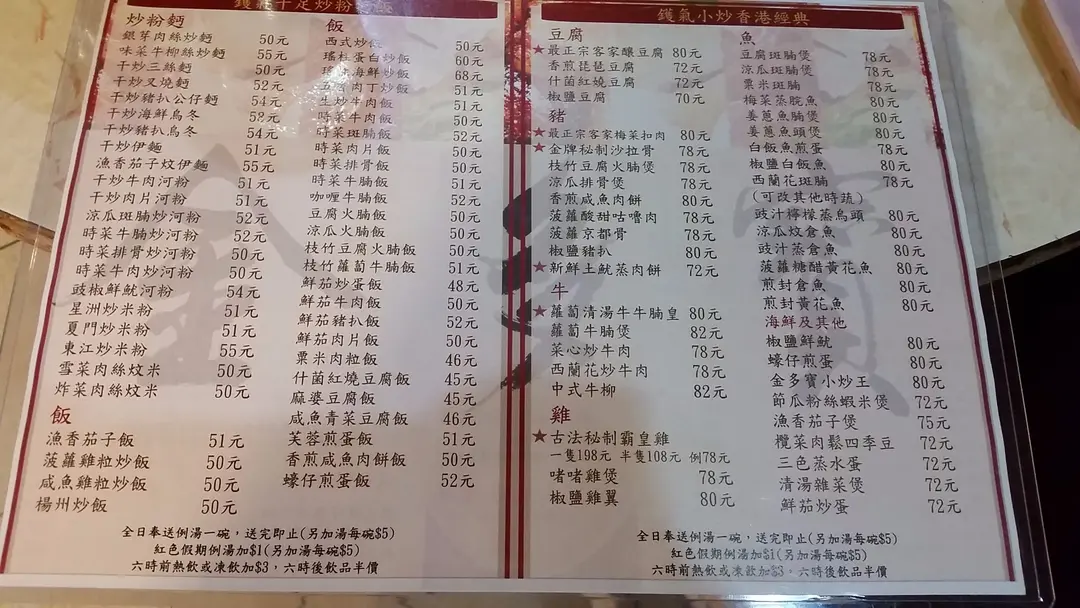 炒粉麵
銀芽肉絲炒麵 50元
味菜牛柳絲炒麵 55元
干炒三絲麵 50元
干炒叉燒麵 52元
干炒豬扒公仔麵 54元
干炒海鮮烏冬 58元
干炒豬扒烏冬 54元
干炒伊麵 51元
漁香茄子炆伊麵 55元
干炒牛肉河粉 51元
干炒肉片河粉 51元
涼瓜斑腩炒河粉 52元
時菜牛腩炒河粉 52元
時菜排骨炒河粉 50元
時菜牛肉炒河粉 50元
豉椒鮮魷河粉 54元
星洲炒米粉 51元
夏門炒米粉 51元
東江炒米粉 55元
雪菜肉絲炆米 50元
炸菜肉絲炆米 50元
飯
漁香茄子飯 51元
菠蘿雞粒炒飯 50元
咸魚雞粒炒飯 50元
楊州炒飯 50元
飯
西式炒飯 50元
瑤柱蛋白炒飯 60元
海鮮炒飯 68元
肉丁炒飯 51元
生炒牛肉飯 51元
時菜牛肉飯 50元
時菜斑腩飯 52元
時菜肉片飯 50元
時菜排骨飯 50元
時菜牛腩飯 51元
咖喱牛腩飯 52元
豆腐火腩飯 50元
涼瓜火腩飯 50元
枝竹豆腐火腩飯 50元
枝竹蘿蔔牛腩飯 51元
鮮茄炒蛋飯 48元
鮮茄牛肉飯 50元
鮮茄豬扒飯 52元
鮮茄肉片飯 50元
粟米肉粒飯 46元
什菌紅燒豆腐飯 45元
麻婆豆腐飯 45元
咸魚青菜豆腐飯 46元
芙蓉煎蛋飯 51元
香煎咸魚肉餅飯 50元
蠔仔煎蛋飯 52元
全日奉送例湯一碗，送完即止(另加湯每碗$5)
紅色假期例湯加$1(另加湯每碗$5)
六時前熱飲或凍飲加$3，六時後飲品半價
鑊氣小炒香港經典
豆腐
★最正宗客家釀豆腐 80元
香煎琵琶豆腐 72元
什菌紅燒豆腐 72元
椒鹽豆腐 70元
豬
★最正宗客家梅菜扣肉 80元
★金牌秘制沙拉骨 78元
枝竹豆腐火腩煲 78元
涼瓜排骨煲 78元
香煎咸魚肉餅 80元
菠蘿酸甜咕嚕肉 78元
菠蘿京都骨 78元
椒鹽豬扒 80元
★新鮮土魷蒸肉餅 72元
牛
★蘿蔔清湯牛牛腩皇 80元
蘿蔔牛腩煲 82元
菜心炒牛肉 78元
西蘭花炒牛肉 78元
中式牛柳 82元
雞
★古法秘制霸皇雞
一隻198元 半隻108元 例78元
啫啫雞煲 78元
椒鹽雞翼 80元
魚
豆腐斑腩煲 78元
涼瓜斑腩煲 78元
粟米斑腩 78元
梅菜蒸脘魚 80元
姜蔥魚腩煲 80元
姜蔥魚頭煲 80元
白飯魚煎蛋 78元
椒鹽白飯魚 80元
西蘭花斑腩 78元
(可改其他時蔬)
豉汁檸檬蒸烏頭 80元
涼瓜炆倉魚 80元
豉汁蒸倉魚 80元
菠蘿糖醋黃花魚 80元
煎封倉魚 80元
煎封黃花魚 80元
海鮮及其他
椒鹽鮮魷 80元
蠔仔煎蛋 80元
金多寶小炒王 80元
節瓜粉絲蝦米煲 72元
漁香茄子煲 75元
欖菜肉鬆四季豆 72元
三色蒸水蛋 72元
清湯雜菜煲 72元
鮮茄炒蛋 72元
全日奉送例湯一碗，送完即止(另加湯每碗$5)
紅色假期例湯加$1(另加湯每碗$5)
六時前熱飲或凍飲加$3，六時後飲品半價